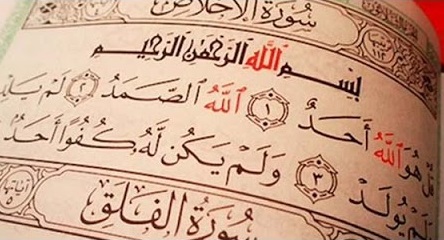 سُورَةُ الإِخْلَاصِ
بِسْمِ ٱللَّهِ ٱلرَّحْمَٰنِ ٱلرَّحِيمِ
هُوَ ٱللَّهُ أَحَدٌ ١ ٱللَّهُ ٱلصَّمَدُ ٢ لَمْ يَلِدْ
لَمْ يُولَدْ ٣ وَلَمْ يَكُن لَّهُ كُفُوًا أَحَدٌ
سُورَةُ الْفَلَقِ
آياتها ٥